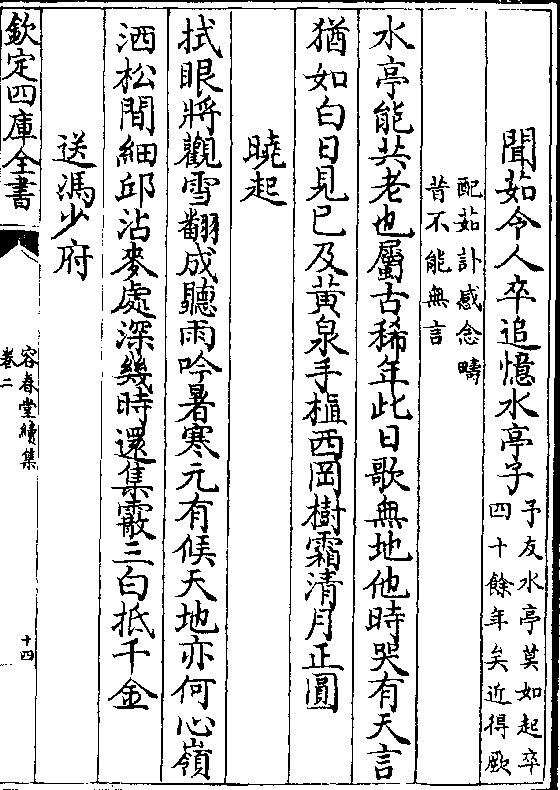 聞茹令人卒追憶水亭字予友水亭莫如起卒
四十餘年矣近得厥
配茹訃感念疇
昔不能無言
水亭能共老也屬古稀年此日歌無地他時哭有天言
猶如白日見已及黃泉手植西岡樹霜清月正圓
曉起
拭眼將觀雪翻成聽雨吟暑寒元有候天地亦何心嶺
洒松間細邱沾麥處深幾時還集霰三白抵千金
送馮少府
欽定四庫全書
容春堂續集
卷二
十四